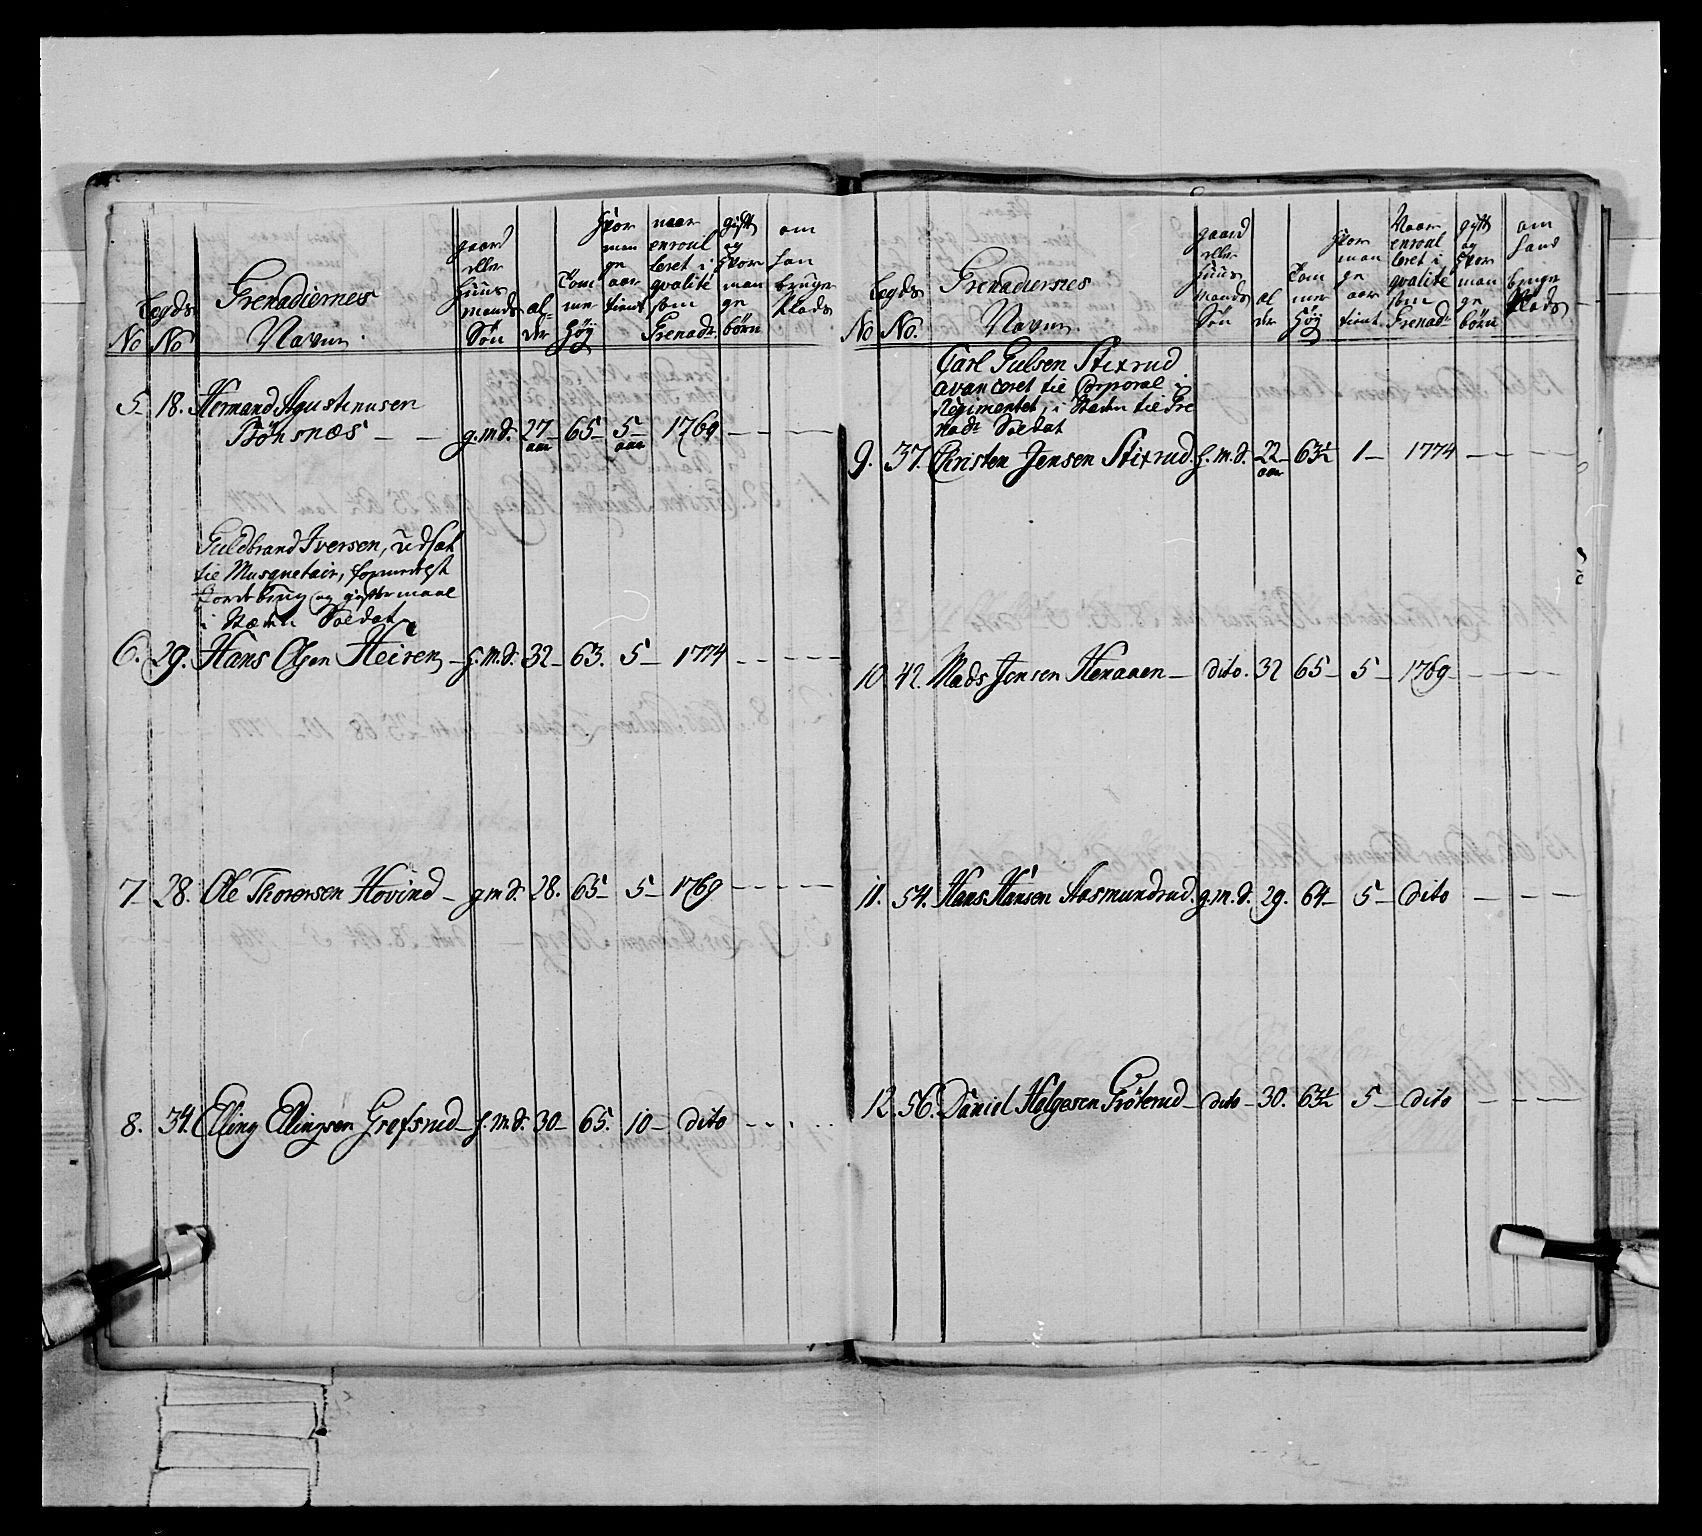 No
Lægds No
Grenadiernes Navne.
gaard eller Huus mands Søn
al- der
Tom me Høg
hvor man ge aar tient
naar enroul leret i qvalite som Grenadr.
gift og hvor man ge børn
om han bruger Plads
5. 18. Hermand Agustinusen
Bönsnæs - - g.m.S. 27 aar 65 5 aar 1769 - - - -
Guldbrand Iversen, udsat
til Musquetair, formedelst
Jordebrug og giftermaal
i Stæden Soldat
6. 29. Hans Olsen Heiren - h.m.S. 32 - 63. 5 - 1774 - - - -
7. 28. Ole Thorersen Hovind - g.m.S. 28. 65 - 5 - 1769 - - - -
8. 34. Elling Ellingsen Grefsrud - h.m.S. 30 - 65. 10 - dito - - - -
No
Lægds No.
Grenadiernes Navne.
gaard eller Huus mands Søn
al der
Tom mer Høg
hvor man ge aar tient
Naar enroul leret i qvalite som Grenadr
gift og hvor man ge børn
om hand bruger Plads
Carl Gulsen Stixrud
avanceret til Corporal i
Regimentet, i Stæden til Gre
nadr Soldat
9. 37. Christen Jensen Stixrud. h.m.S. 22 aar 63½ 1 - 1774 - - - -
10. 42. Mads Jensen Henaaen - dito. 32 65 - 5 - 1769 - - - -
11. 54. Hans Hansen Aasmundrud. g.m.S. 29. 64 - 5 - dito - - - -
12. 56. Daniel Helgesen Fröterud - dito - 30. 63½ 5 - dito - - - -